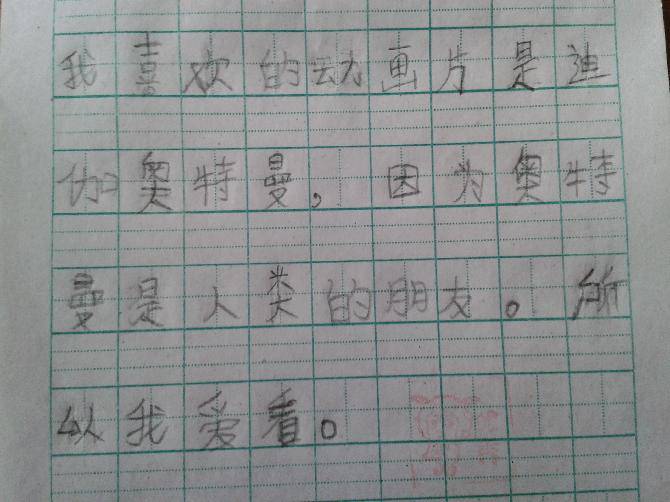 我喜欢的动画片是迪
伽奥特曼，因为奥特
曼是人类的朋友。所
以我爱看。